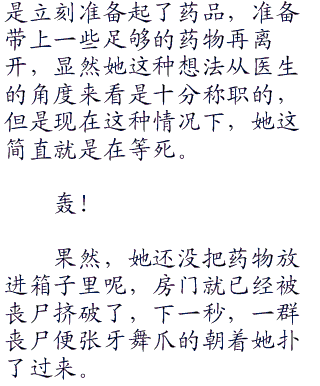 是立刻准备起了药品，准备
带上一些足够的药物再离
开，显然她这种想法从医生
的角度来看是十分称职的，
但是现在这种情况下，她这
简直就是在等死。
轰！
果然，她还没把药物放
进箱子里呢，房门就已经被
丧尸挤破了，下一秒，一群
丧尸便张牙舞爪的朝着她扑
了过来。